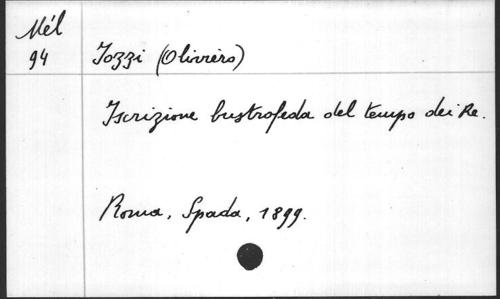 Mél
94
Iozzi (Oliviero)
Iscrizione bustrofeda del tempo dei Re.
Roma, Spada, 1899.